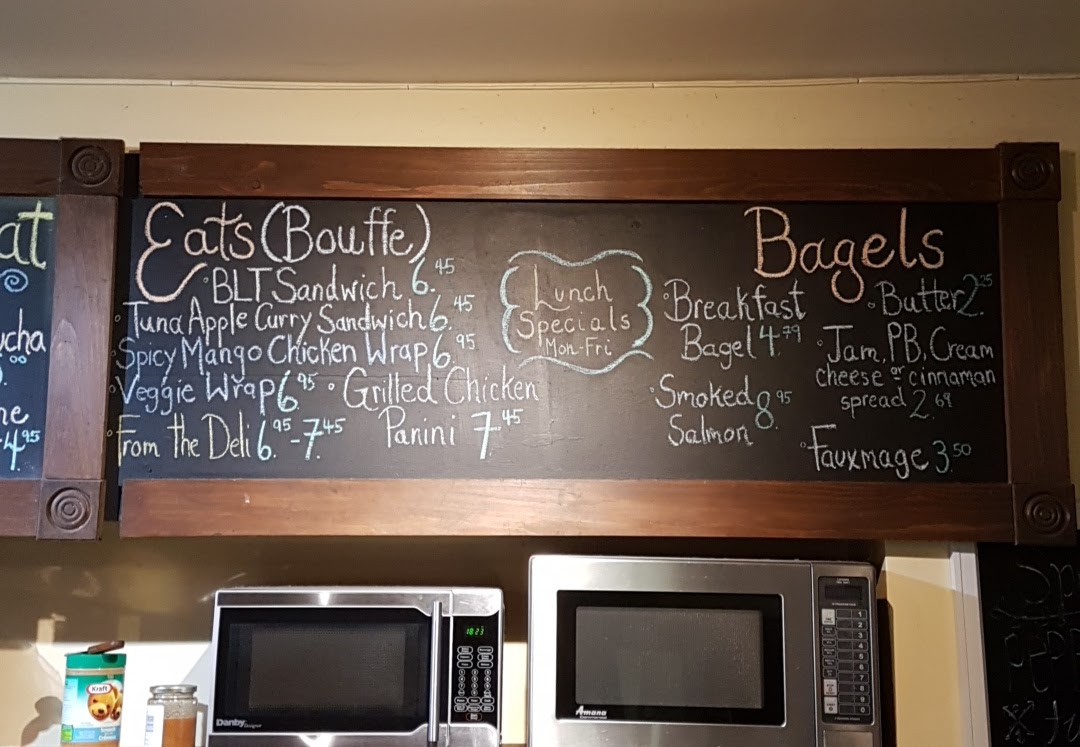 at
ucha
.00
ne
-4.95
Eats (Bouffe)
• BLT Sandwich 6.45
• Tuna Apple Curry Sandwich 6.45
• Spicy Mango Chicken Wrap 6.95
• Veggie Wrap 6.95 • Grilled Chicken
Panini 7.45
• From the Deli 6.95-7.45
Lunch
Specials
Mon-Fri
Bagels
• Breakfast
Bagel 4.79
• Smoked
Salmon 8.95
• Butter 2.25
• Jam, PB, Cream
cheese or cinnaman
spread 2.69
• Fauxmage 3.50
Kraft
Danby Designer
18:23
Amana
Commercial
1
2
3
4
5
6
7
8
9
0